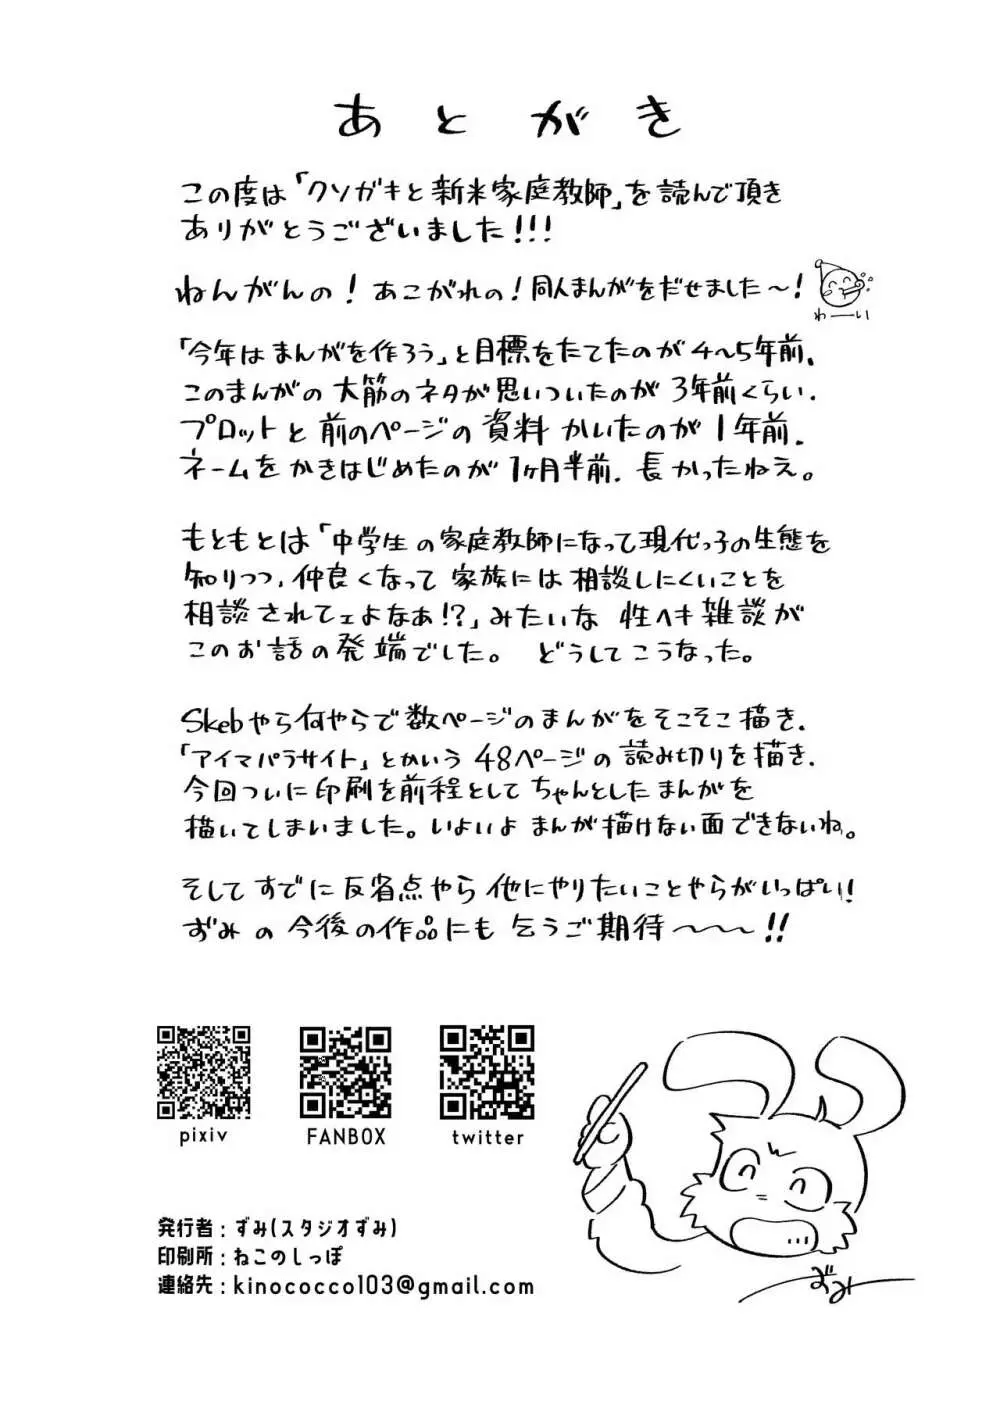 あとがき
この度は「クソガキと新米家庭教師」を読んで頂き
ありがとうございました!!!
ねんがんの!あこがれの!同人まんがをだせました〜!
わーい
「今年はまんがを作ろう」と目標をたてたのが4〜5年前.
このまんがの大筋のネタが思いついたのが3年前くらい.
プロットと前のページの資料かいたのが1年前.
ネームをかきはじめたのが1ヶ月半前.長かったねえ。
もともとは「中学生の家庭教師になって現代っ子の生態を
知りつつ、仲良くなって家族には相談しにくいことを
相談されてェよなぁ!?」みたいな性ヘキ雑談が
このお話の発端でした。どうしてこうなった。
Skebやら何やらで数ページのまんがをそこそこ描き.
「アイマパラサイト」とかいう48ページの読み切りを描き.
今回ついに印刷を前程としてちゃんとしたまんがを
描いてしまいました。いよいよまんが描けない面できないね。
そしてすでに反省点やら他にやりたいことやらがいっぱい!
ずみの今後の作品にも乞うご期待〜〜〜!!
pixiv
FANBOX
twitter
発行者:ずみ(スタジオずみ)
印刷所:ねこのしっぽ
連絡先:kinococco103@gmail.com
ずみ